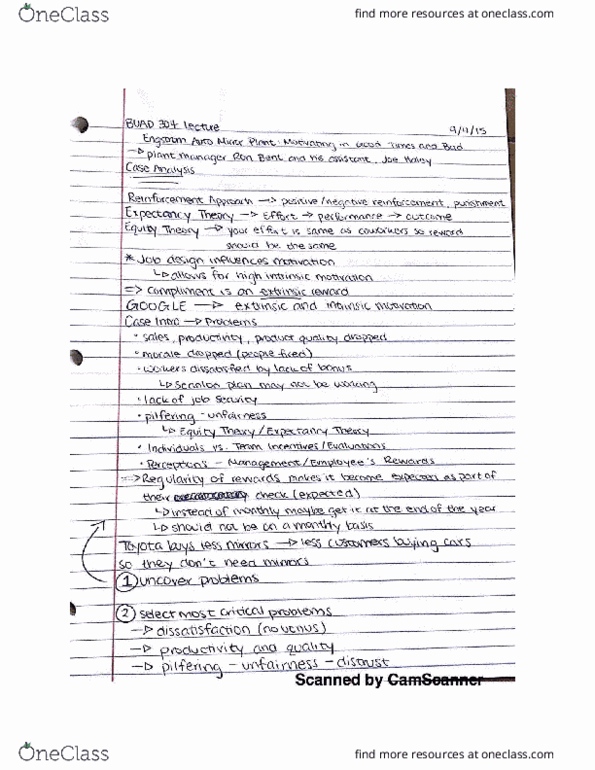 OneClass
find more resources at oneclass.com
BUAD 304 lecture 9/11/15
Engstrom Auto Mirror Plant: Motivating in Good Times and Bad
→ plant manager Ron Bent and his assistant, Joe Haley
Case Analysis
Reinforcement Approach → positive/negative reinforcement, punishment
Expectancy Theory → Effort → performance → outcome
Equity Theory → your effort is same as coworkers so reward
should be the same
* Job design influences motivation
↳ allows for high intrinsic motivation
=> compliment is an extrinsic reward
GOOGLE → extrinsic and intrinsic motivation
Case Intro → Problems
• sales, productivity, product quality dropped
• morale dropped (people fired)
• workers dissatisfied by lack of bonus
↳ Scanlon plan may not be working
• lack of job security
• pilfering - unfairness
↳ Equity Theory/Expectancy Theory
• Individuals vs. Team Incentives/Evaluations
• Perceptions - Management/Employee's Rewards
=> Regularity of rewards makes it become expected as part of
their check (expected)
↳ instead of monthly maybe get it at the end of the year
↳ should not be on a monthly basis
Toyota buys less mirrors → less customers buying cars
so they don't need mirrors
① uncover problems
② select most critical problems
→ dissatisfaction
→ productivity and quality
→ pilfering - unfairness - distrust
Scanned by CamScanner
OneClass
find more resources at oneclass.com